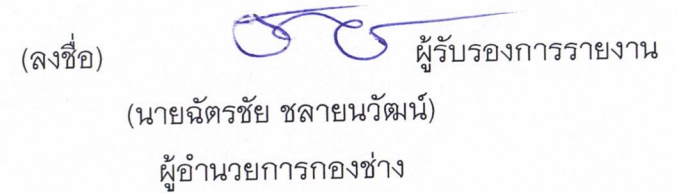 (ลงชื่อ) ผู้รับรองการรายงาน
(นายฉัตรชัย ชลายนวัฒน์)
ผู้อำนวยการกองช่าง